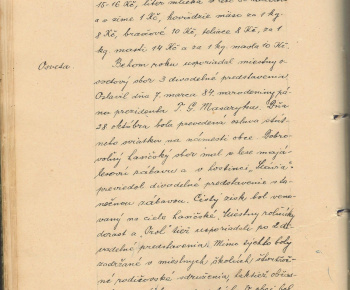 15-16 Kč, liter mlieka
a v zime 1 Kč, hovädzie mäso za 1 kg.
8 Kč, bravčové 10 Kč, teľacie 8 Kč, za 1
kg. masti 14 Kč a za 1 kg. masla 20 Kč.
Osveta
Behom roku usporiadal miestny o-
svetový sbor 3 divadelné predstavenia.
Oslavil dňa 7. marca 84. narodeniny pá-
na prezidenta T. G. Masaryka. Dňa
28 októbra bola prevedená oslava štát-
neho sviatku na námestí obce. Dobro-
voľný hasičský sbor mal v lese majá-
lesovú zábavu a v hostinci
previedol divadelné predstavenie s ta-
nečnou zábavou. Čistý zisk bol veno-
vaný na ciele hasičské. Miestny roľnícky
dorast a „Orol" tiež usporiadali po 2 di-
vadelné predstavenia. Mimo týchto boly
zadržané v miestnych školách
né rodičovské združenia, taktiež